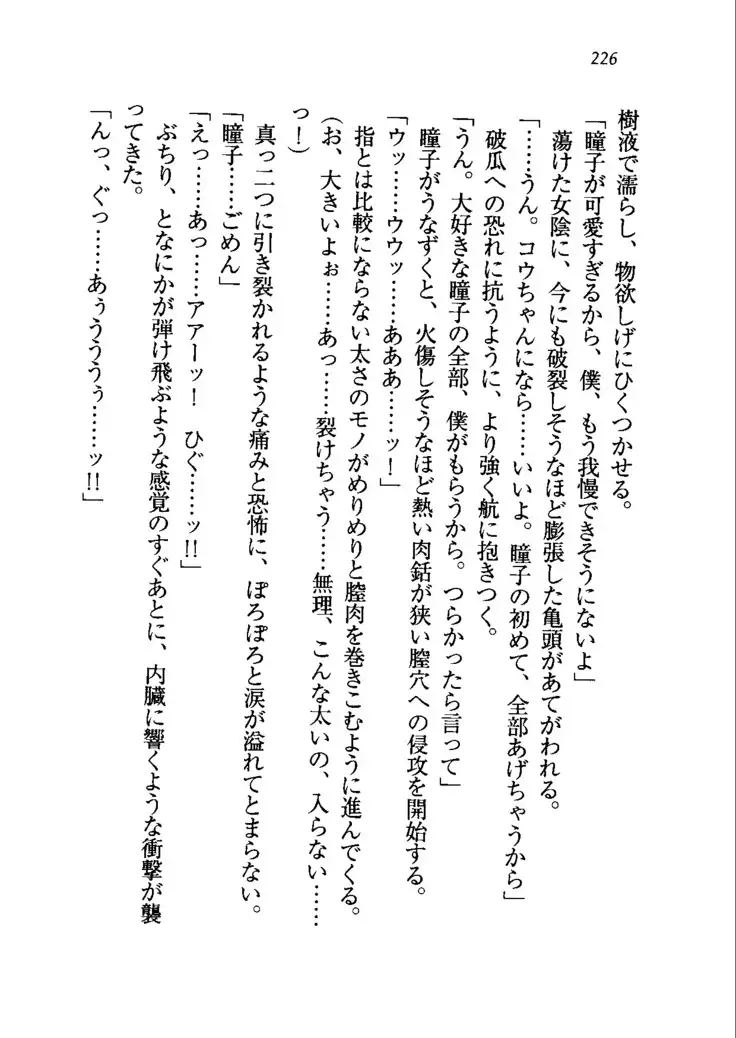 226
樹液で濡らし、物欲しげにひくつかせる。
「瞳子が可愛すぎるから、僕、もう我慢できそうにないよ」
蕩けた女陰に、今にも破裂しそうなほど膨張した亀頭があてがわれる。
「……うん。コウちゃんになら……いいよ。瞳子の初めて、全部あげちゃうから」
破瓜への恐れに抗うように、より強く航に抱きつく。
「うん。大好きな瞳子の全部、僕がもらうから。つらかったら言って」
瞳子がうなずくと、火傷しそうなほど熱い肉銛が狭い膣穴への侵攻を開始する。
「ウッ……ウウッ……あああ……ッ！」
指とは比較にならない太さのモノがめりめりと膣肉を巻きこむように進んでくる。
（お、大きいよぉ……あっ……裂けちゃう……無理、こんな太いの、入らない……
っ！）
真っ二つに引き裂かれるような痛みと恐怖に、ぽろぽろと涙が溢れてとまらない。
「瞳子……ごめん」
「えっ……あっ……アアーッ！　ひぐ……ッ!!」
ぶちり、となにかが弾け飛ぶような感覚のすぐあとに、内臓に響くような衝撃が襲
ってきた。
「んっ、ぐっ……あぅうううぅ……ッ!!」